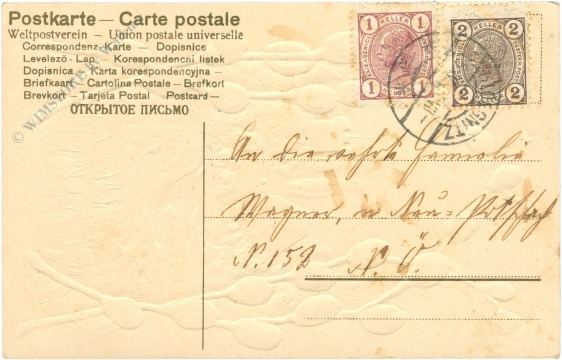 Postkarte — Carte postale
Weltpostverein — Union postale universelle
Correspondenz-Karte — Dopisnice
Levelező-Lap — Korespondencni listek
Dopisnica — Karta korespondencyjna —
Briefkaart — Cartolina Postale — Brefkort
Brevkort — Tarjeta Postal — Postcard —
ОТКРЫТОЕ ПИСЬМО
1 HELLER 1
1 1
2 HELLER 2
2 2
An die werthe Familie
Wagner, in Neu=
N. 152 N. Ö.